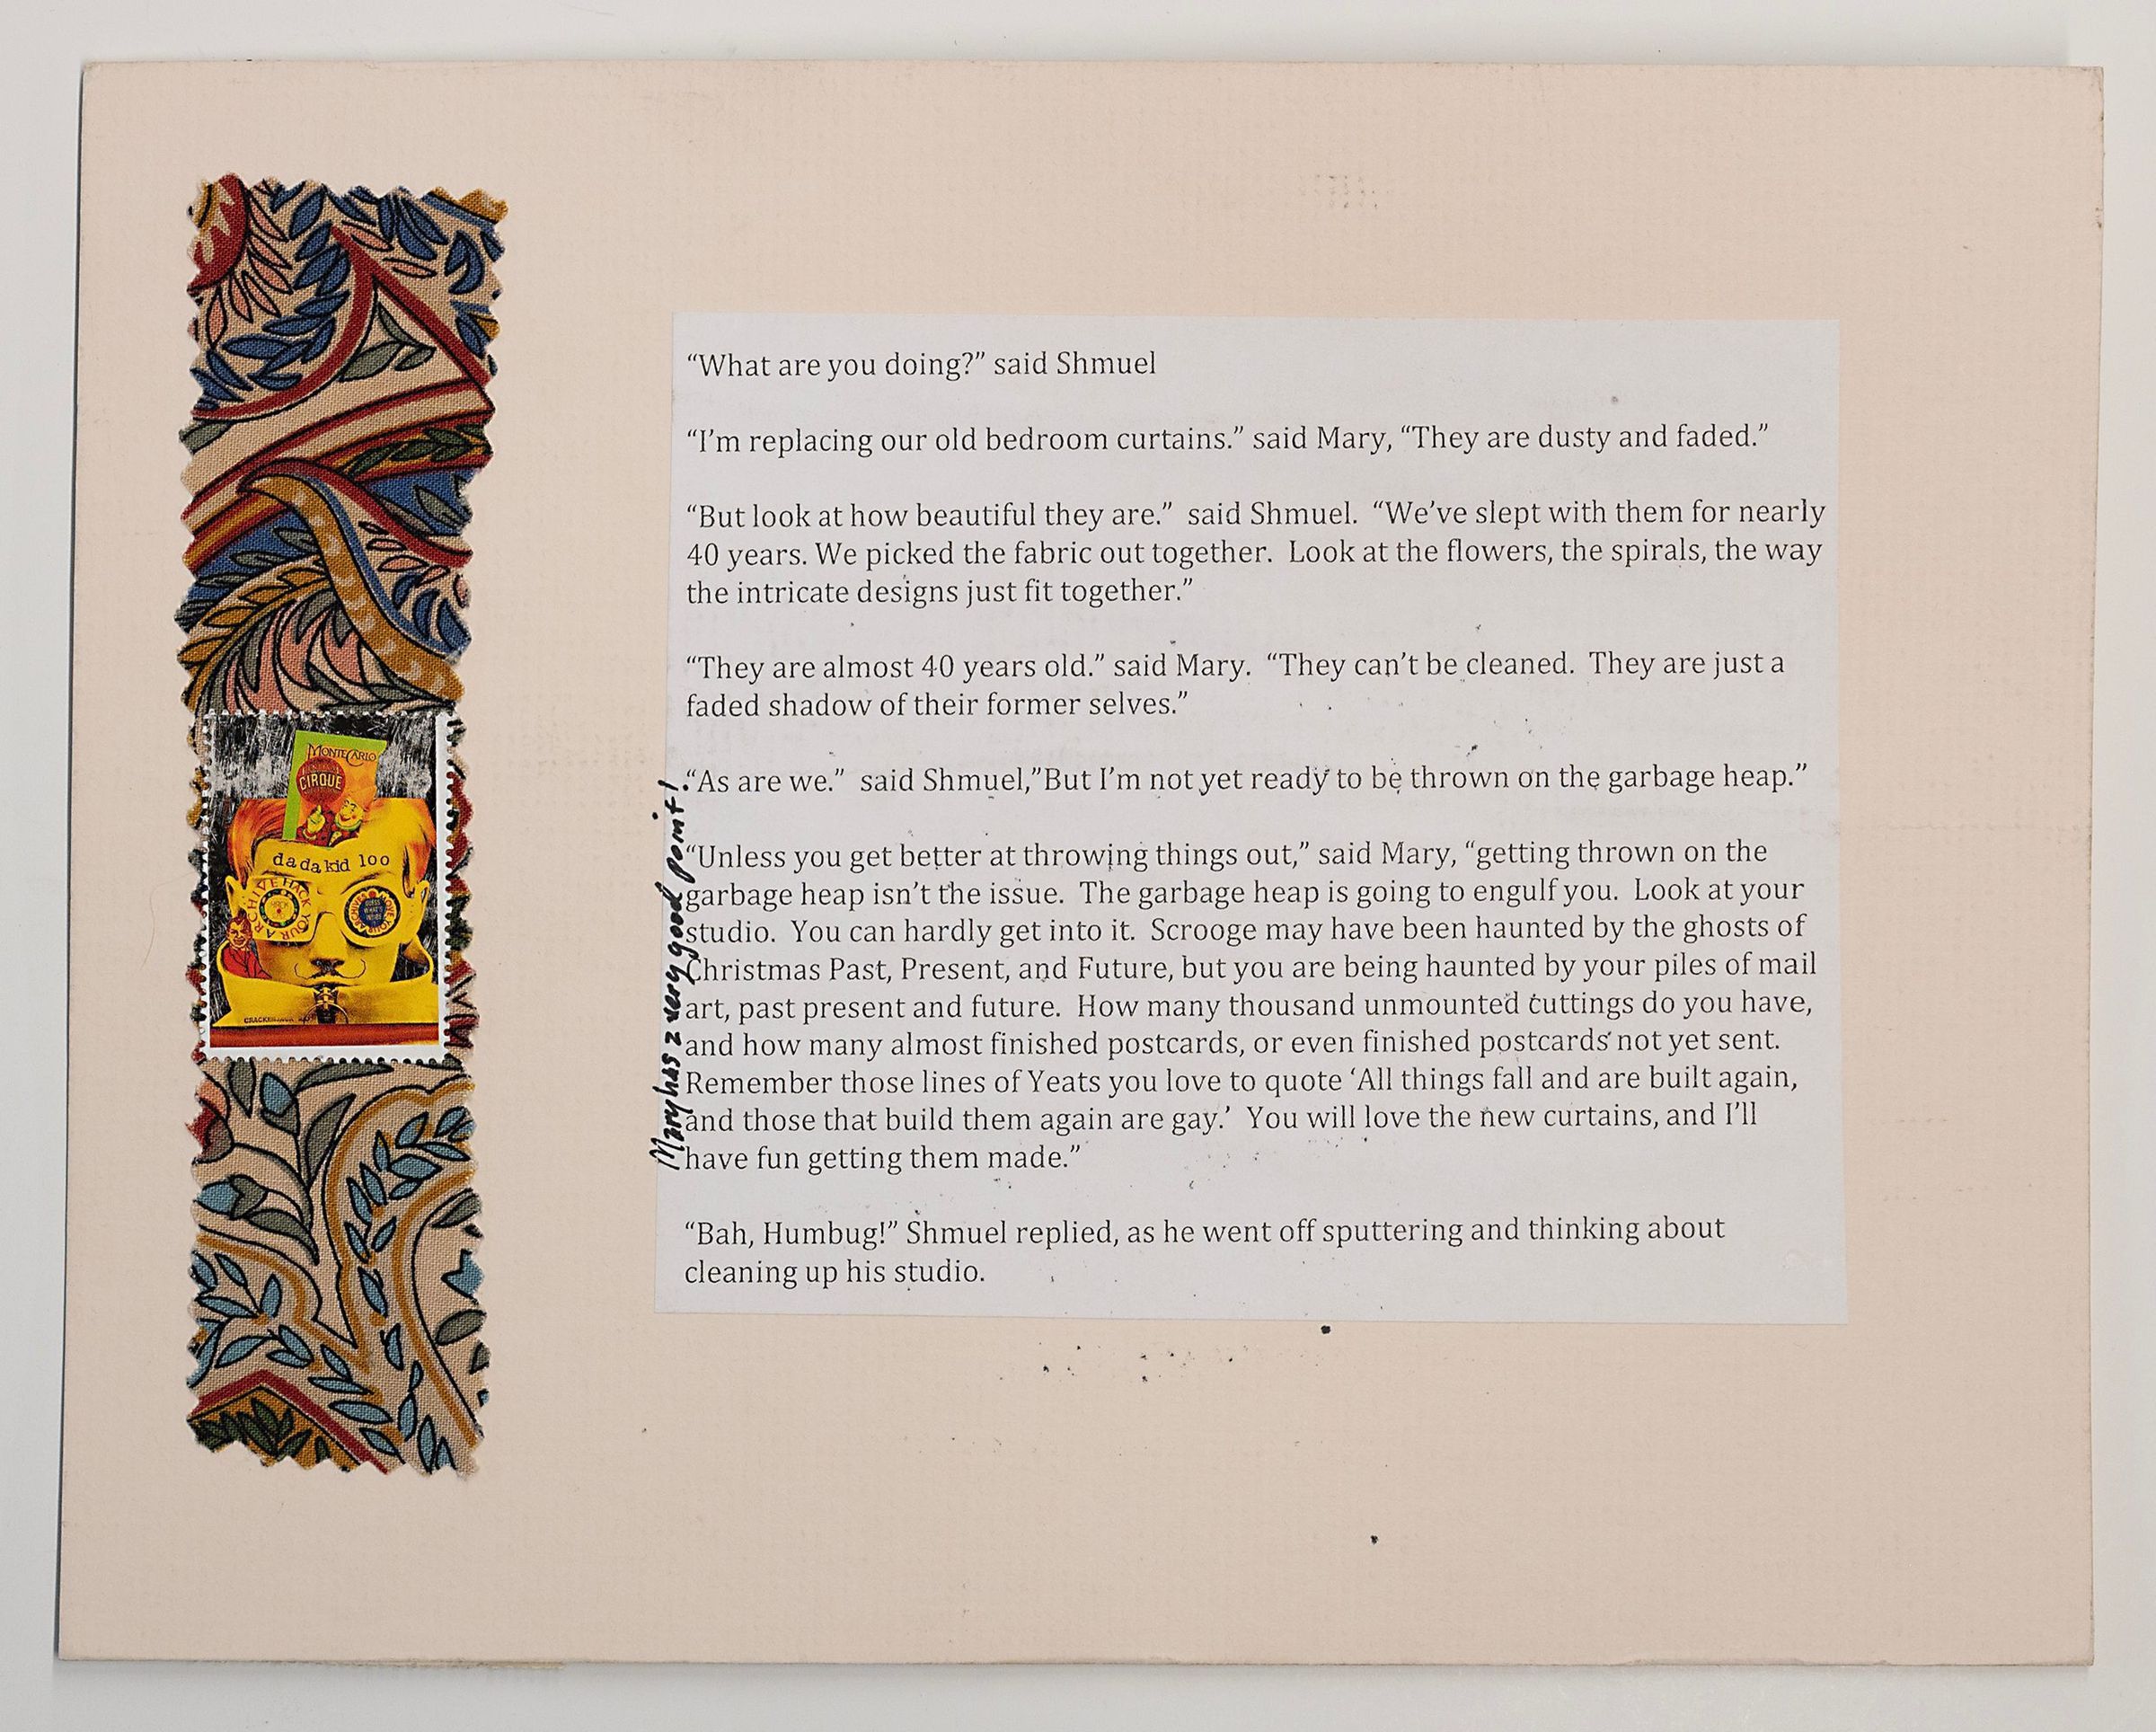 "What are you doing?" said Shmuel
"I'm replacing our old bedroom curtains." said Mary, "They are dusty and faded."
"But look at how beautiful they are."  said Shmuel.  "We've slept with them for nearly
40 years. We picked the fabric out together.  Look at the flowers, the spirals, the way
the intricate designs just fit together."
"They are almost 40 years old." said Mary.  "They can't be cleaned.  They are just a
faded shadow of their former selves."
"As are we."  said Shmuel,"But I'm not yet ready to be thrown on the garbage heap."
"Unless you get better at throwing things out," said Mary, "getting thrown on the
garbage heap isn't the issue.  The garbage heap is going to engulf you.  Look at your
studio.  You can hardly get into it.  Scrooge may have been haunted by the ghosts of
Christmas Past, Present, and Future, but you are being haunted by your piles of mail
art, past present and future.  How many thousand unmounted cuttings do you have,
and how many almost finished postcards, or even finished postcards not yet sent.
Remember those lines of Yeats you love to quote 'All things fall and are built again,
and those that build them again are gay.'  You will love the new curtains, and I'll
have fun getting them made."
"Bah, Humbug!" Shmuel replied, as he went off sputtering and thinking about
cleaning up his studio.
Mary has a very good point!
MONTE CARLO
CIRQUE
dadakid loo
ARCHIVE HACK YOUR